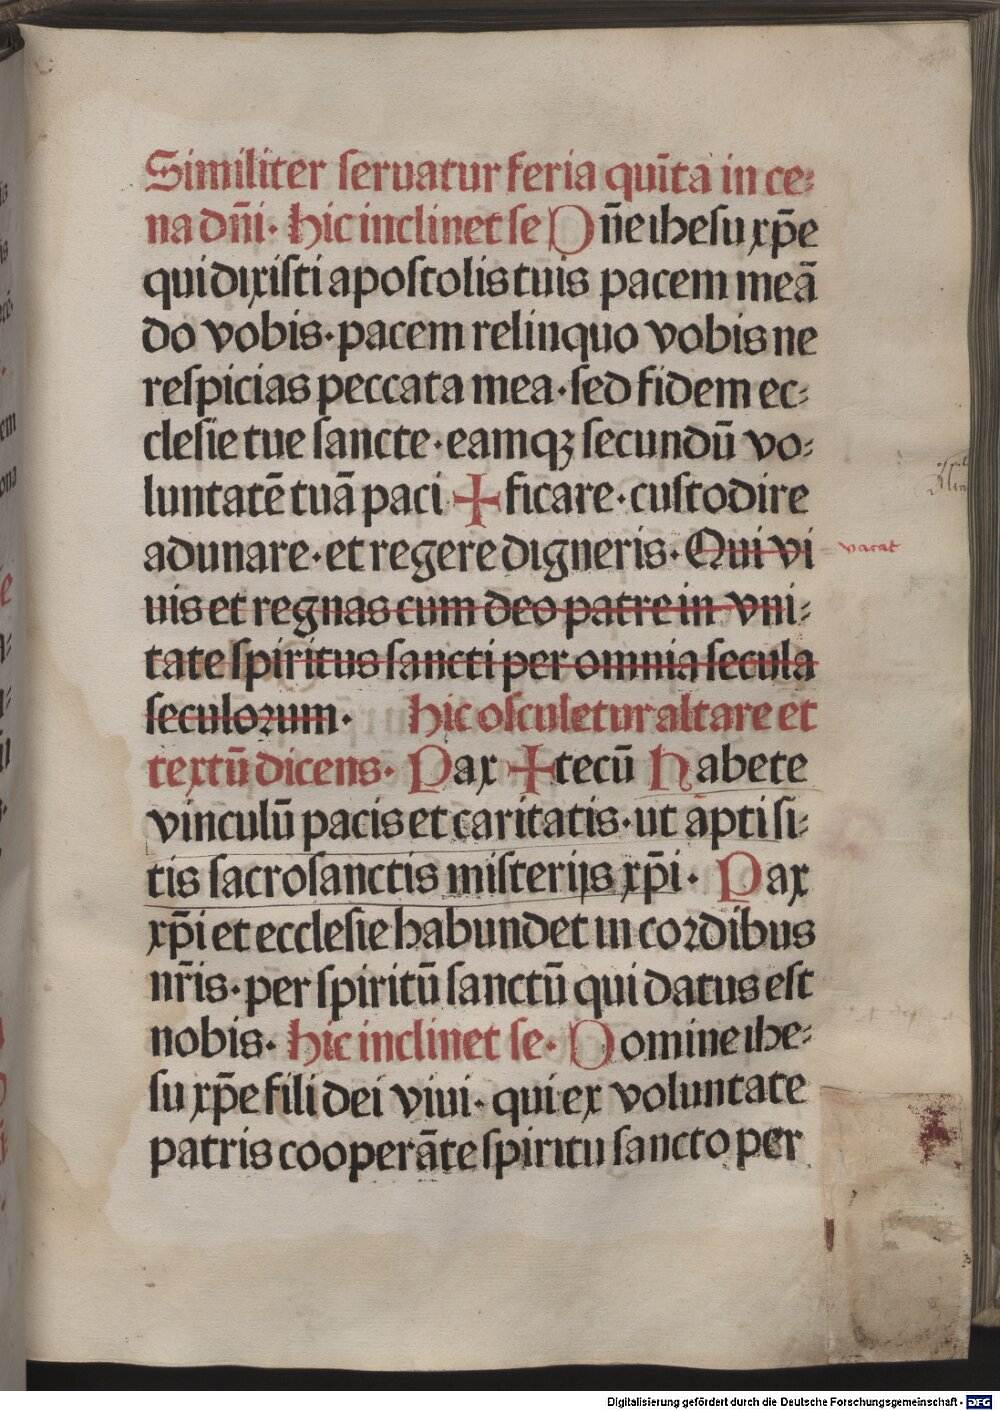 Similiter seruatur feria qui̅ta in ce⸗
na dn̅i· hic inclinet se Dn̅e ihesu xp̅e
qui dixisti apostolis tuis pacem mea̅
do vobis· pacem relinquo vobis ne
respicias peccata mea· sed fidem ec⸗
clesie tue sancte· eamqꝫ secundu̅ vo⸗
luntate̅ tua̅ paci ✠ ficare· custodire
adunare· et regere digneris· Qui vi
vacat
uis et regnas cum deo patre in vni⸗
tate spiritus sancti per omnia secula
seculorum· hic osculetur altare et
textu̅ dicens· Pax ✠ tecu̅ Habete
vinculu̅ pacis et caritatis· ut apti si⸗
tis sacrosanctis misterijs xp̅i· Pax
xp̅i et ecclesie habundet in cordibus
nr̅is· per spiritu̅ sanctu̅ qui datus est
nobis· hic inclinet se· Domine ihe⸗
su xp̅e fili dei viui· qui ex voluntate
patris coopera̅te spiritu sancto per
Digitalisierung gefördert durch die Deutsche Forschungsgemeinschaft - DFG